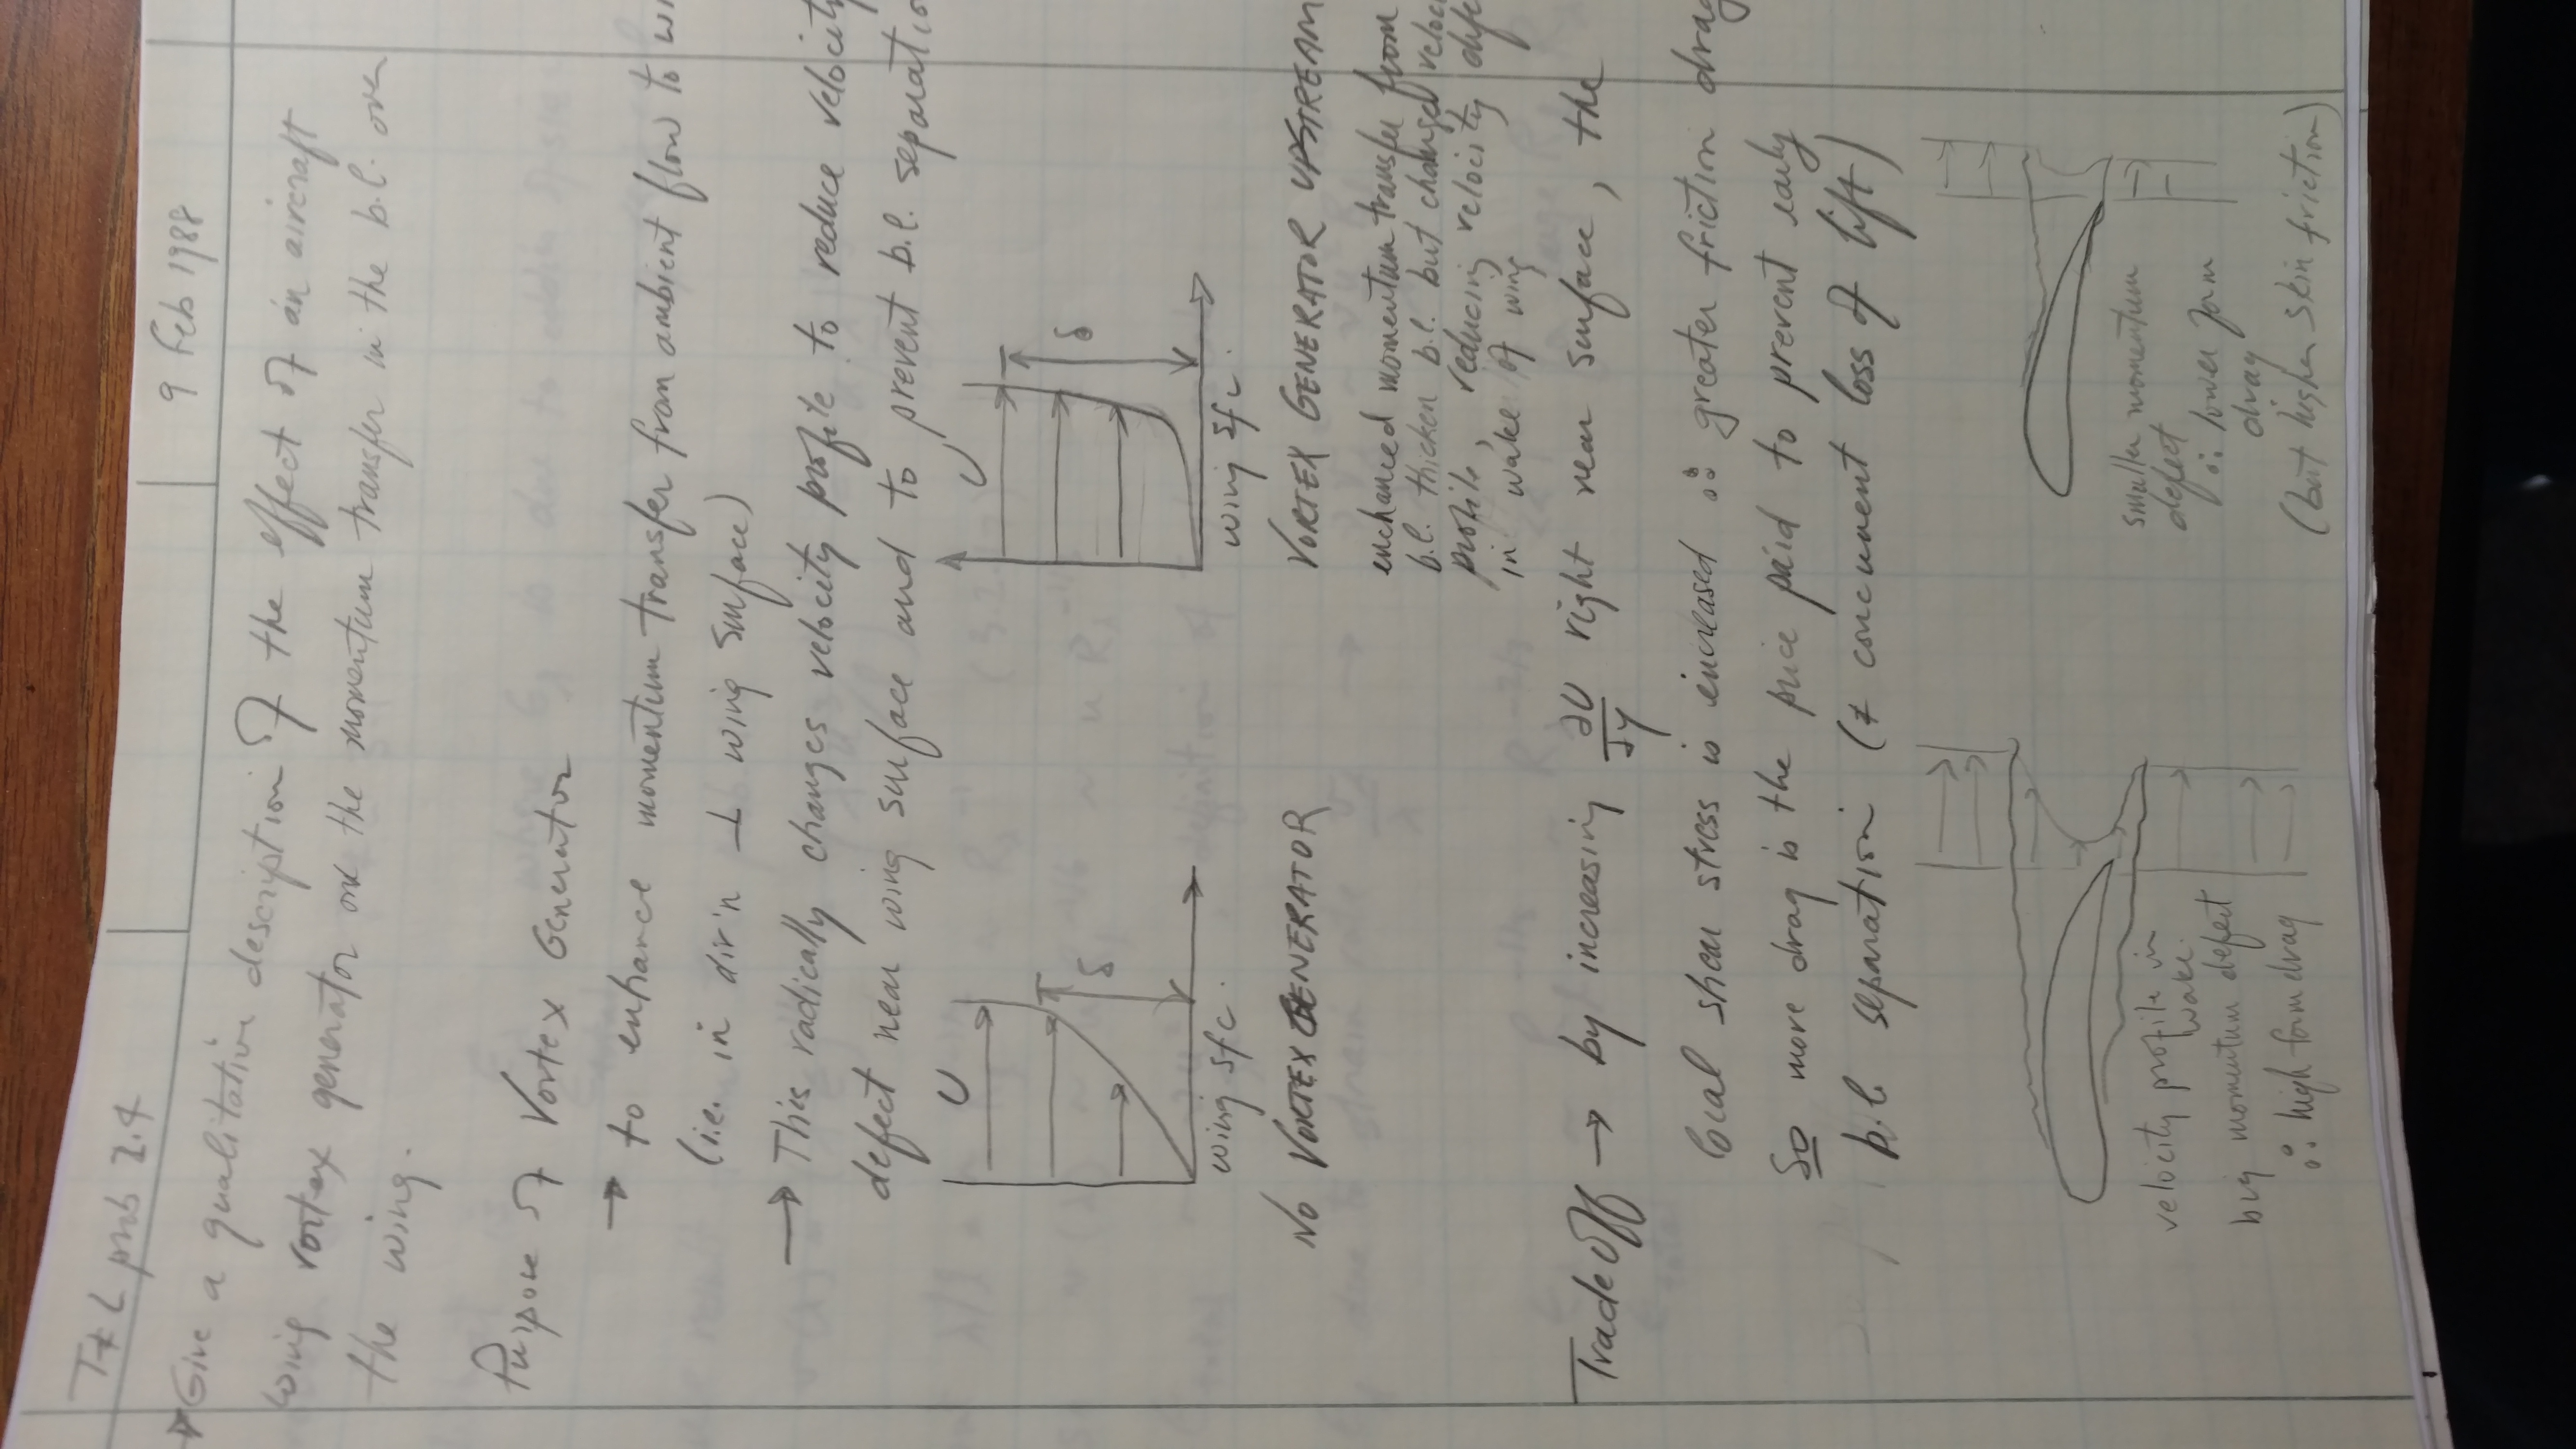 T & L prob 2.4
9 Feb 1988
Give a qualitative description of the effect of an aircraft
wing vortex generator on the momentum transfer in the b.l. over
the wing.
Purpose of Vortex Generator
→ to enhance momentum transfer from ambient flow to wi
(i.e. in dir'n ⊥ wing surface)
→ This radically changes velocity profile to reduce velocity
defect near wing surface and to prevent b.l. separatio
U
δ
wing sfc.
NO VORTEX GENERATOR
U
δ
wing sfc.
VORTEX GENERATOR UPSTREAM
enchanced momentum transfer from
b.l. thicken b.l. but changed veloci
profile, reducing velocity defe
in wake of wing
Trade Off → by increasing ∂U/∂y right near surface, the
local shear stress is increased ∴ greater friction drag
So more drag is the price paid to prevent early
b.l. separation (& concurrent loss of lift)
velocity profile in
wake.
big momentum defect
∴ high form drag
smaller momentum
defect
∴ lower form
drag
(but higher skin friction)